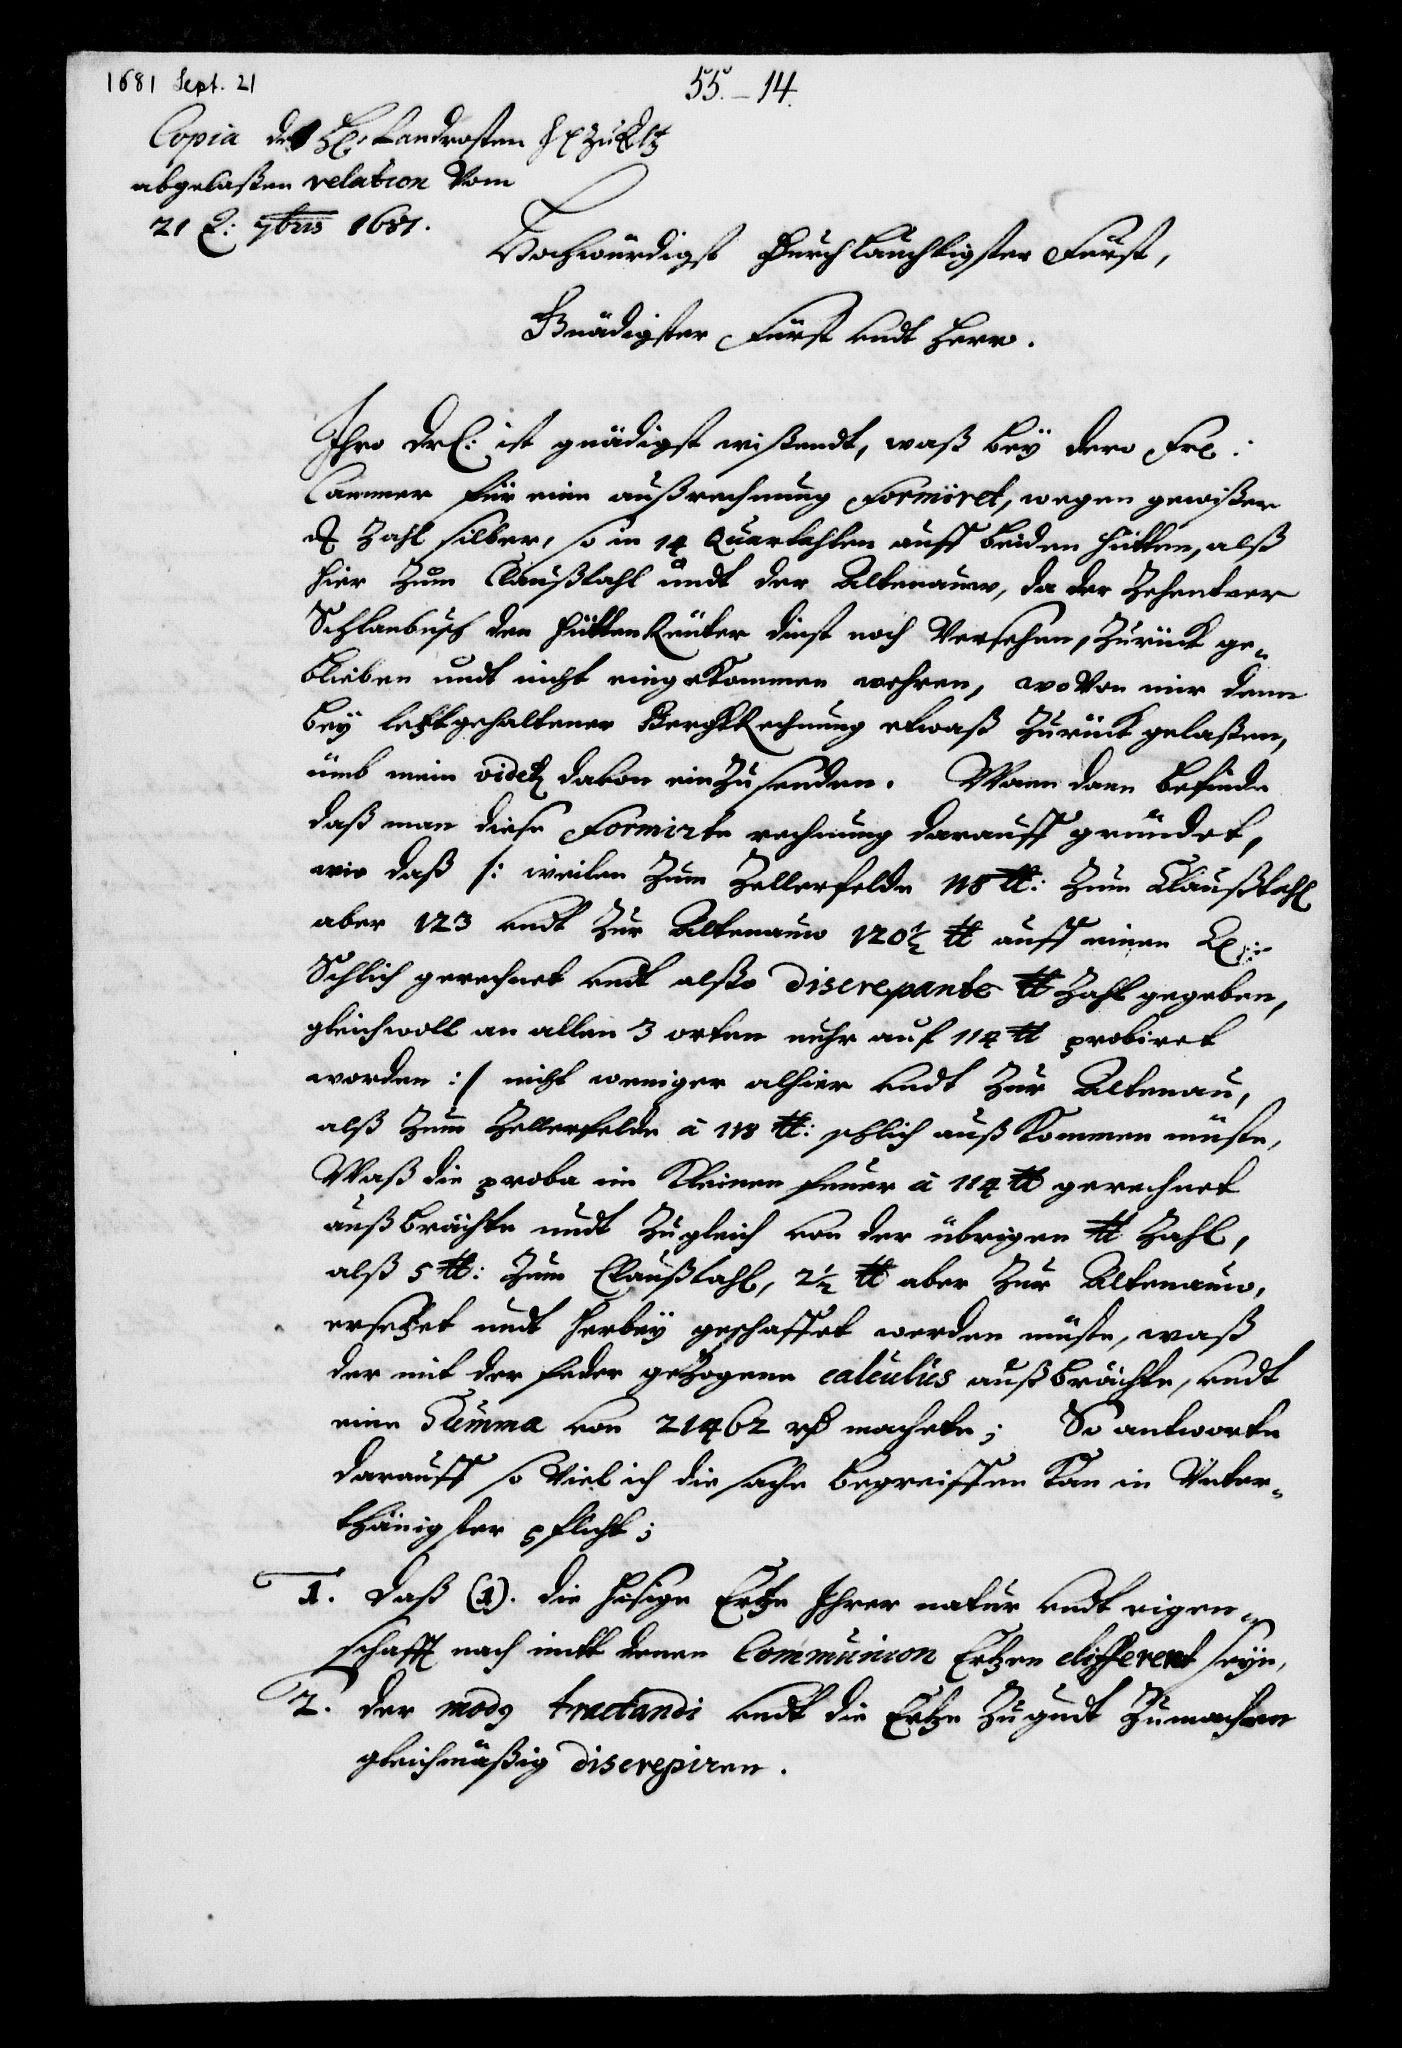 1681 Sept. 21
55.-14.
Copia des H. Landrosten
abgelaßen relation Vom
21 7bris 1681.
Hochwürdigst Durchläuchtigster Fürst,
Gnädigster Fürst undt Herr.
Ihro Drl: ist gnädigst wißendt, waß bey dero
Cammer für eine außrechnung Formiret, wegen gewißer
Zahl silber, so in 14 Quartahlen auff beiden Hütten, alß
hier Zum Claußtahl undt der Altenauw, da der Zehentner
Schlanbusch den Hütten Reuter dinst noch Versehen, Zurück ge-
blieben undt nicht eingekommen wehren, wovon mir dann
bey letztgehaltener BergkRechnung etwaß Zurück gelaßen,
umb mein davon einZusenden. Wann dann befinde
daß man diese Formirte rechnung darauff gründet,
wie daß /: weilen Zum Zellerfelde 118 ℔: Zum Claußtahl
aber 123 undt Zur Altenauw 120½ ℔ auff einen
Schlich gerechnet undt alßo discrepante ℔ Zahl gegeben,
gleichwoll an allen 3 orten nuhr auf 114 ℔ probiret
worden :/ nicht weniger alhier undt Zur Altenau,
alß Zum Zellerfelde à 118 ℔: schlich auß kommen müste,
Waß die proba im Kleinen feuer à 114 ℔ gerechnet
außbrächte undt Zugleich von der übrigen ℔ Zahl,
alß 5 ℔: Zum Claußtahl, 2½ ℔ aber Zur Altenauw,
ersetzet undt herbey geschaffet werden müste, waß
der mit der feder gezogene calculus außbrächte, undt
eine Summa von 21462 machete; So antworte
darauff so Viel ich die sache begreiffen kan in Unter-
thänigster pflicht;
1. Daß (1). die hisige Ertze Ihrer natur undt eigen-
schafft nach mitt denen Communion Ertzen different seyn,
2. der modus tractandi undt die Ertze Zu gudt Zumachen
gleichmäßig discrepiren.